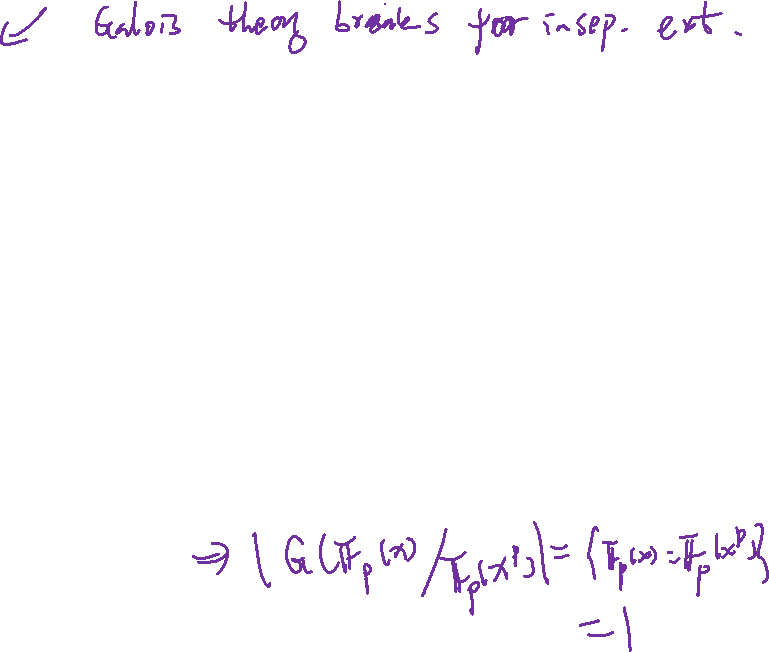 ↙ Galois theory breaks for insep. ext.
⇒ |G(𝔽_p(x)/𝔽_p(x^p))| = {𝔽_p(x) : 𝔽_p(x^p)}
= 1